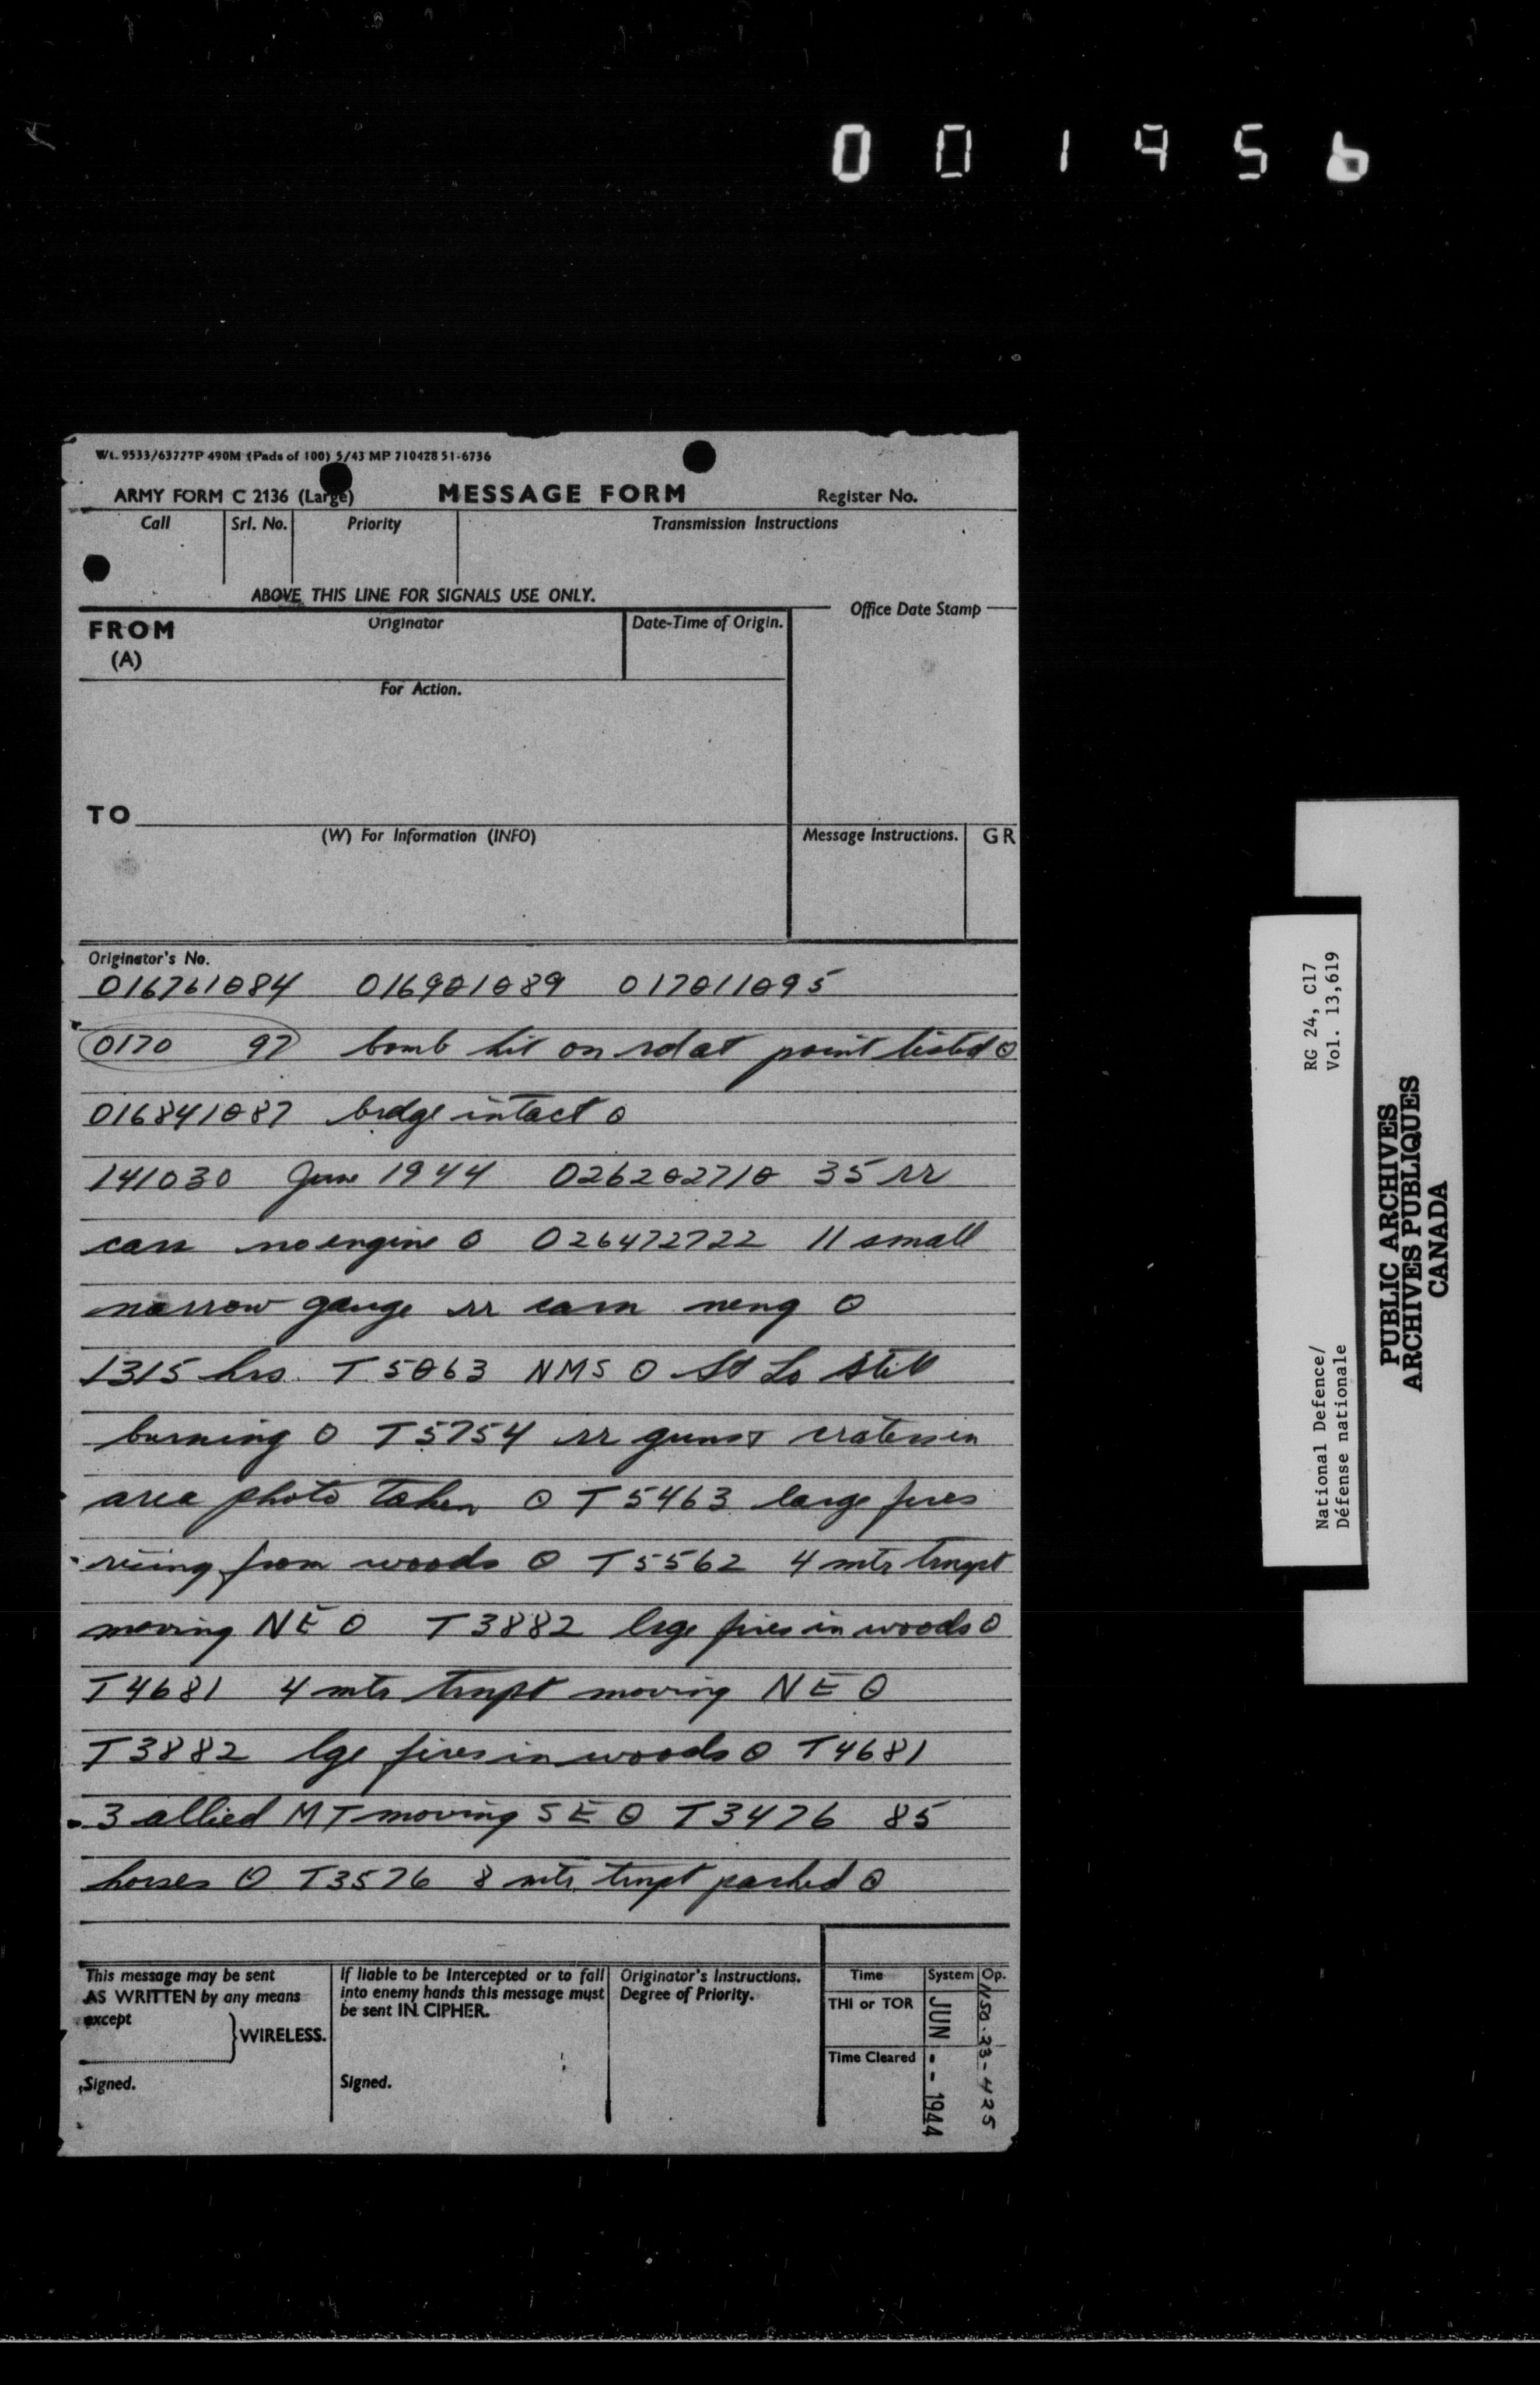 001956
Wt. 9533/63727P 490M (Pads of 100) 5/43 MP 710428 51-6736
ARMY FORM C 2136 (Large) MESSAGE FORM Register No.
Call Srl. No. Priority Transmission Instructions
ABOVE THIS LINE FOR SIGNALS USE ONLY.
FROM (A) Originator Date-Time of Origin. Office Date Stamp
For Action.
TO
(W) For Information (INFO) Message Instructions. GR
Originator's No.
016761084 016901089 017011095
0170 97 bomb hit on rd at point listed O
016841087 brdge intact O
141030 June 1944 026202710 35 rr
cars no engine O 026472722 11 small
narrow gauge rr cars neng O
1315 hrs. T5063 NMS O St Lo still
burning O T5754 rr guns craters in
area photo taken O T5463 large fires
rising from woods O T5562 4 mtr trnspt
moving NE O T3882 lrge fires in woods O
T4681 4 mtr trnpt moving NE O
T3882 lge fires in woods O T4681
3 allied MT moving SE O T3476 85
horses O T3576 8 mtr trnpt parked O
This message may be sent AS WRITTEN by any means except } WIRELESS.
Signed.
If liable to be intercepted or to fall into enemy hands this message must be sent IN CIPHER.
Signed.
Originator's Instructions. Degree of Priority.
Time System Op.
THI or TOR
Time Cleared
JUN - - 1944
23-425
National Defence/ RG 24, C17
Défense nationale Vol. 13,619
PUBLIC ARCHIVES
ARCHIVES PUBLIQUES
CANADA